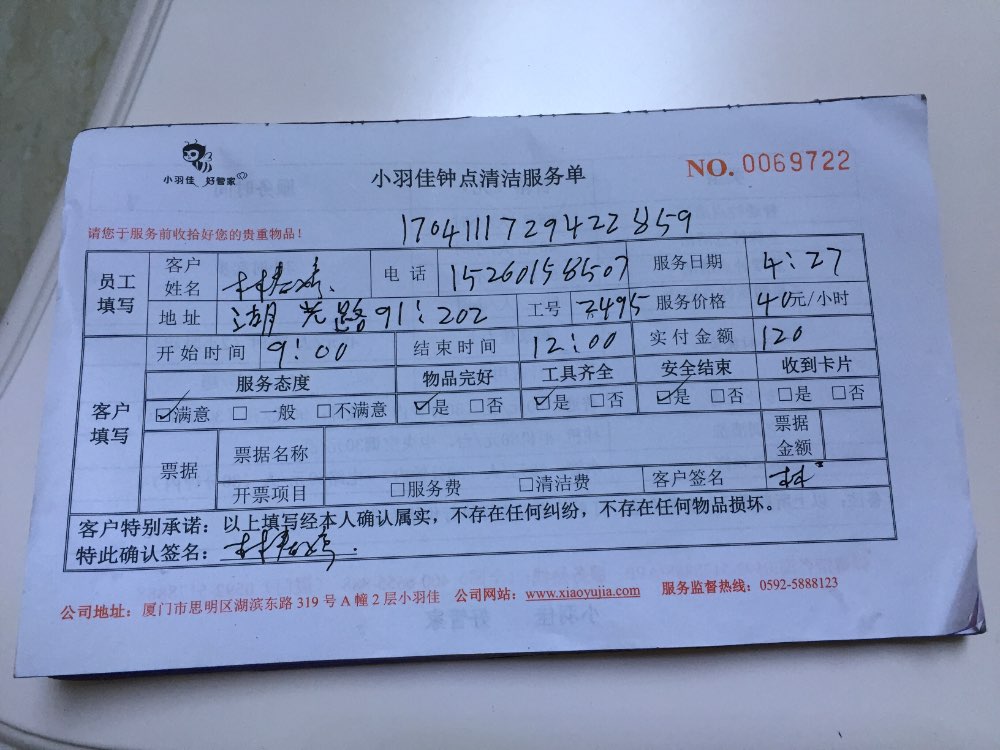 小羽佳 好管家
小羽佳钟点清洁服务单
NO. 0069722
请您于服务前收拾好您的贵重物品！
1704111729422859
员工填写 客户姓名 林 电话 15260158507 服务日期 4:27
地址 湖光路91:202 工号 2495 服务价格 40元/小时
客户填写 开始时间 9:00 结束时间 12:00 实付金额 120
服务态度 物品完好 工具齐全 安全结束 收到卡片
☑满意 □一般 □不满意 ☑是 □否 ☑是 □否 ☑是 □否 □是 □否
票据 票据名称 票据金额
开票项目 □服务费 □清洁费 客户签名 林
客户特别承诺：以上填写经本人确认属实，不存在任何纠纷，不存在任何物品损坏。
特此确认签名：林
公司地址：厦门市思明区湖滨东路 319 号 A 幢 2 层小羽佳 公司网站：www.xiaoyujia.com 服务监督热线：0592-5888123